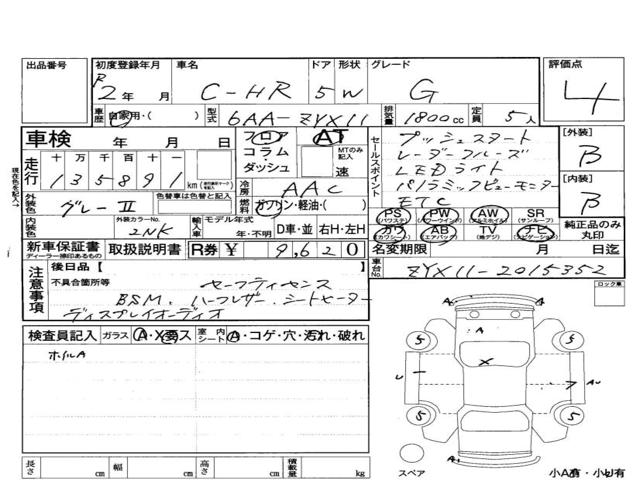 出品番号 初度登録年月 車名 ドア 形状 グレード 評価点
R2年 月 C-HR 5 W G 4
車歴 自家用・( ) 型式 6AA-ZYX11 排気量 1800cc 定員 5人
車検 年 月 日 フロア コラム・ダッシュ AT MTのみ記入 速
走行 十万千百十一
135891 km
冷房 AAC
外装色 グレーⅡ 色替車は色替と記入 燃料 ガソリン・軽油・( )
内装色 外装カラーNo. 2NK 輸入車 モデル年式 年・不明 D車・並 右H・左H
新車保証書 取扱説明書 R券 ¥ 9,620
ディーラー捺印あるもの
セールスポイント
プッシュスタート
レーダークルーズ
LEDライト
パノラミックビューモニター
ETC
PS (パワステ) PW (パワーウインドウ) AW (アルミホイル) SR (サンルーフ)
カワ (カワシート) AB (エアバック) TV (地デジ) ナビ (ナビゲーション)
[外装] B
[内装] B
純正品のみ丸印
名変期限 月 日迄
車台No. ZYX11-2015352
注意事項
後日品【
不具合箇所等 セーフティセンス
BSM. ハーフレザー. シートヒーター
ディスプレイオーディオ
検査員記入 ガラス A・X要ス 室内シート A・コゲ・穴・汚れ・破れ
ホイルA
長さ cm 幅 cm 高さ cm 積載量 kg
ロック車
A
5 5
X
U A U
5 5
A
スペア 小A有・小U有
現在色を記入→